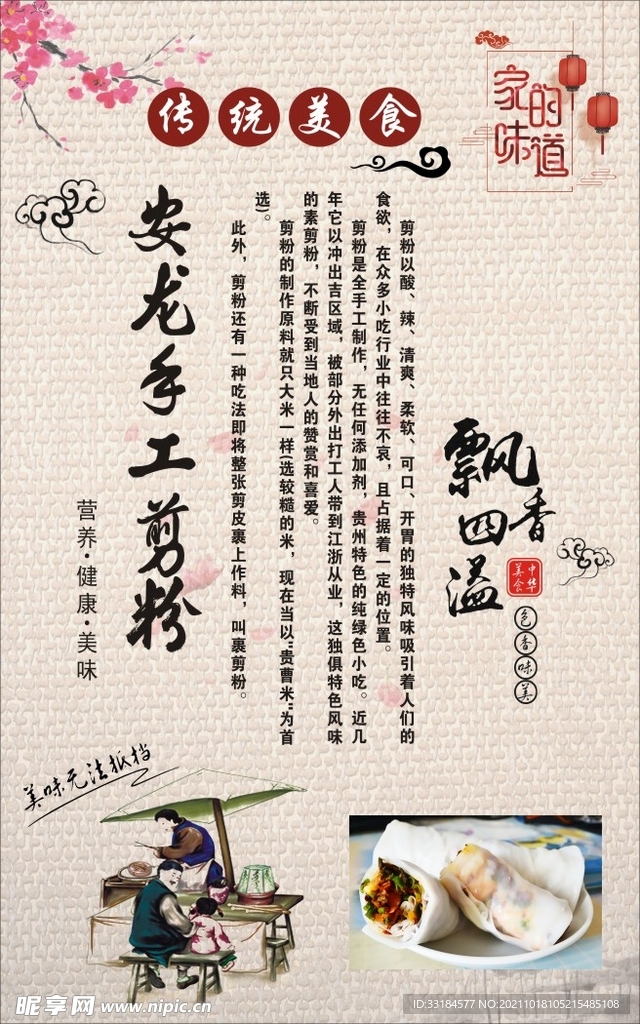 传统美食
家的味道
剪粉以酸、辣、清爽、柔软、可口、开胃的独特风味吸引着人们的
食欲，在众多小吃行业中往往不哀，且占据着一定的位置。
剪粉是全手工制作，无任何添加剂，贵州特色的纯绿色小吃。近几
年它以冲出吉区域，被部分外出打工人带到江浙从业，这独俱特色风味
的素剪粉，不断受到当地人的赞赏和喜爱。
剪粉的制作原料就只大米一样(选较糙的米，现在当以"贵曹米"为首
选)。
此外，剪粉还有一种吃法即将整张剪皮裹上作料，叫裹剪粉。
安龙手工剪粉
营养·健康·美味
飘香四溢
中华美食
色香味美
美味无法抵挡
昵享网 www.nipic.cn
ID:33184577 NO:20211018105215485108